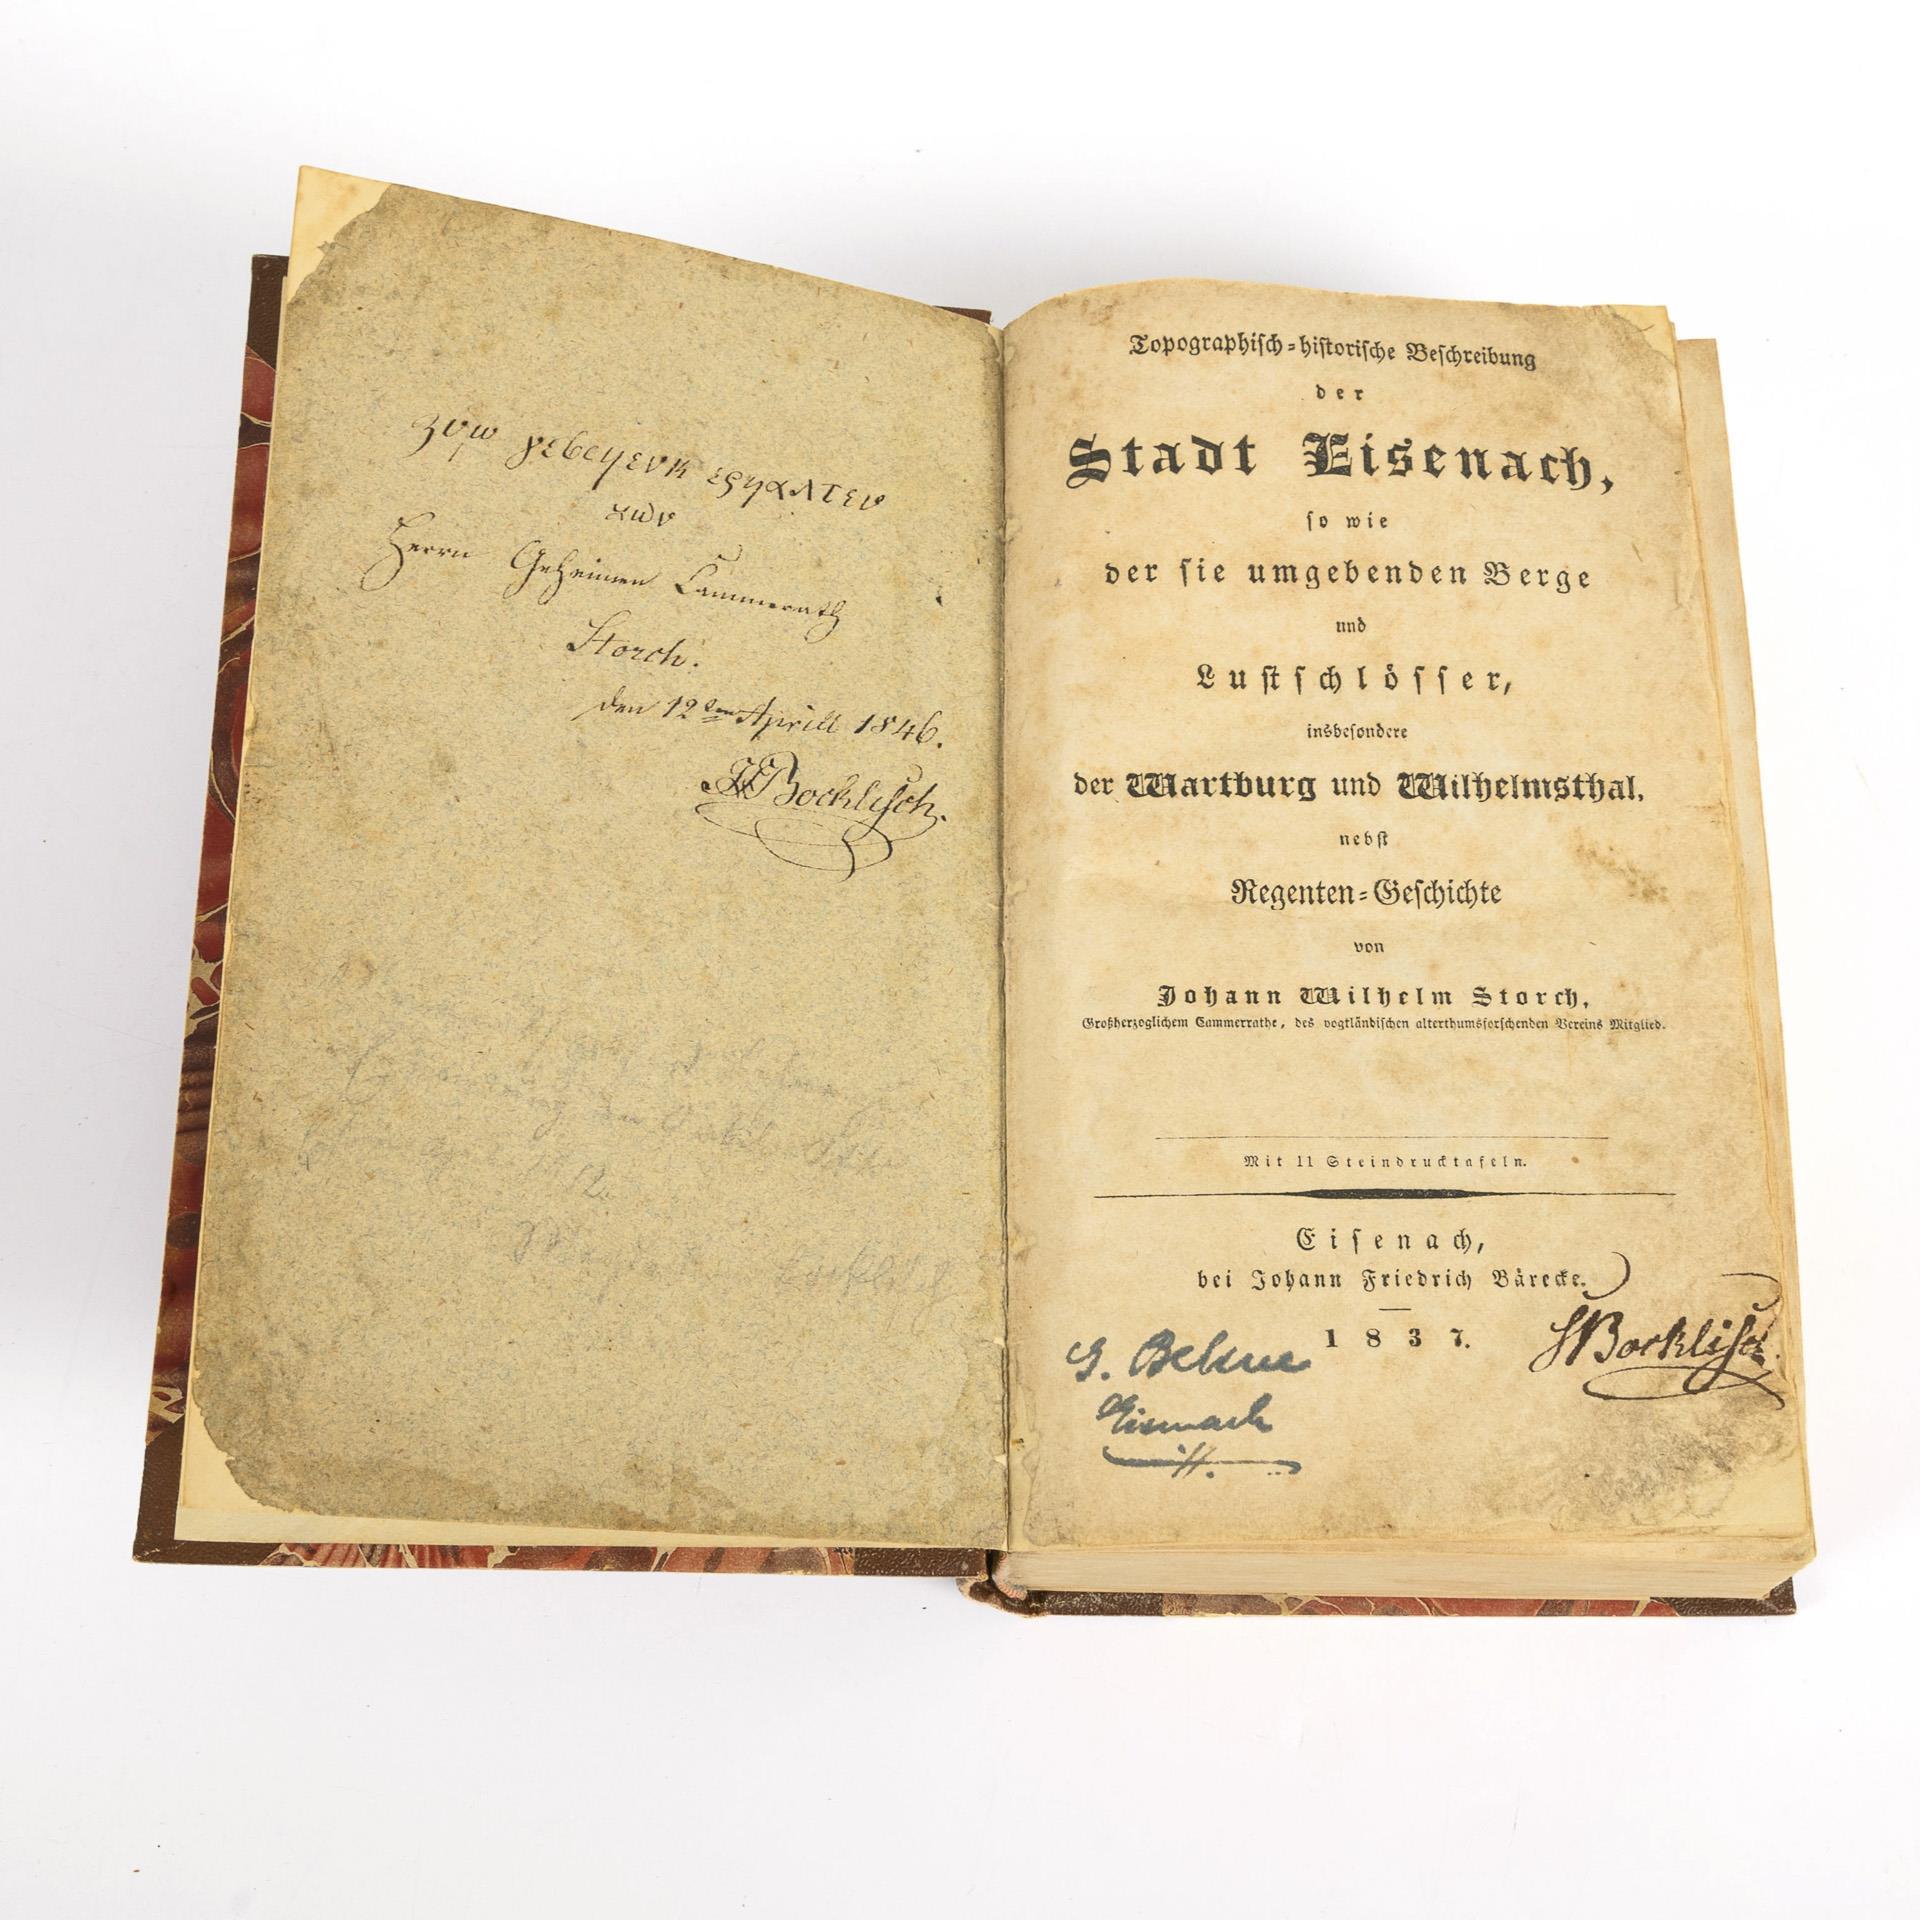 Herrn Geheimen Cammerath
Storch.
den 12ten Aprill 1846.
Bocklisch.
Topographisch=historische Beschreibung
der
Stadt Eisenach,
so wie
der sie umgebenden Berge
und
Lustschlösser,
insbesondere
der Wartburg und Wilhelmsthal,
nebst
Regenten=Geschichte
von
Johann Wilhelm Storch,
Großherzoglichem Cammerrathe, des vogtländischen alterthumsforschenden Vereins Mitglied.
Mit 11 Steindrucktafeln.
Eisenach,
bei Johann Friedrich Bärecke.
1837.
Bocklisch
G. Behne
Eisenach